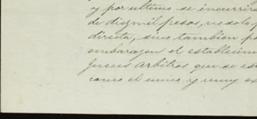 y por ultimo se incurrir
de diezmil pesos, no solo
directa, sino tambien po
embarazen el establecim
Jueces árbitros que se es
como el unico y muy es